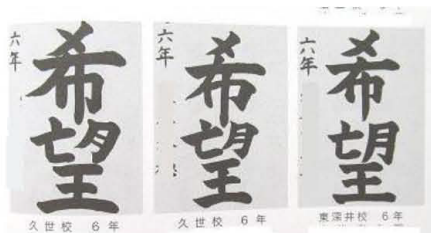 六年
希望
久世校 6年
六年
希望
久世校 6年
六年
希望
東深井校 6年